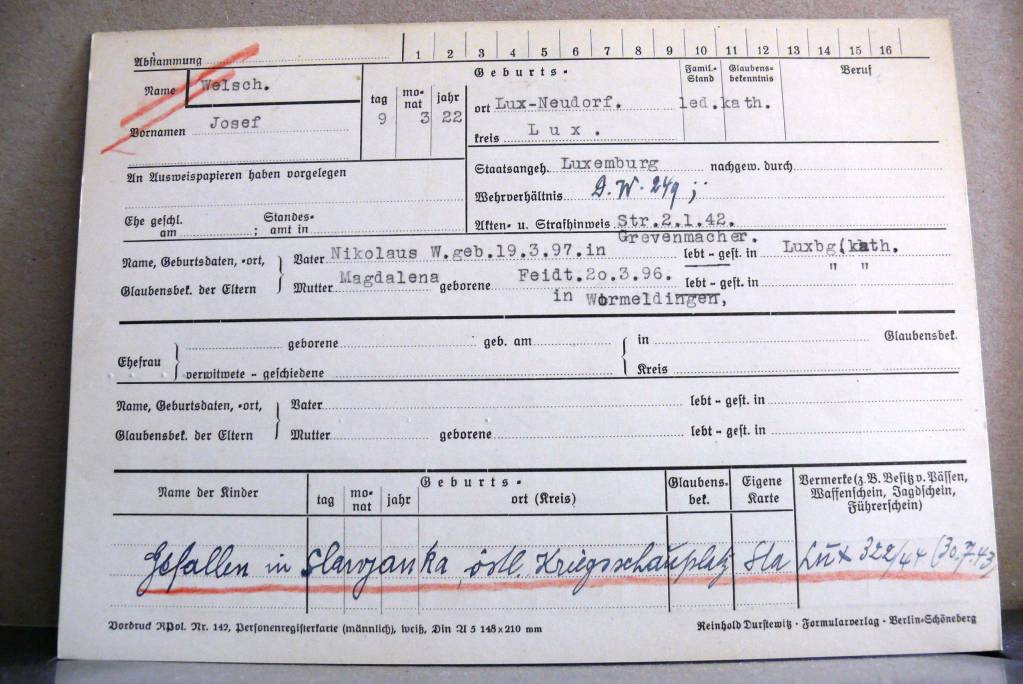 Abstammung 1 2 3 4 5 6 7 8 9 10 11 12 13 14 15 16
Name Welsch. tag monat jahr Geburts- Famil.-Stand Glaubensbekenntnis Beruf
Vornamen Josef 9 3 22 ort Lux-Neudorf. led. kath.
kreis Lux.
An Ausweispapieren haben vorgelegen
Staatsangeh. Luxemburg nachgew. durch
Wehrverhältnis D.W. 249;
Ehe geschl. am ; Standesamt in
Akten- u. Strafhinweis Str.2.1.42.
Grevenmacher.
Name, Geburtsdaten, -ort, Vater Nikolaus W.geb.19.3.97.in lebt - gest. in Luxbg(kath.
Glaubensbek. der Eltern Mutter Magdalena geborene Feidt.20.3.96. lebt - gest. in " "
in Wormeldingen,
geborene geb. am in Glaubensbek.
Ehefrau
verwitwete - geschiedene Kreis
Name, Geburtsdaten, -ort, Vater lebt - gest. in
Glaubensbek. der Eltern Mutter geborene lebt - gest. in
Name der Kinder Geburts- tag monat jahr ort (Kreis) Glaubensbek. Eigene Karte Vermerke (z. B. Besitz v. Pässen, Waffenschein, Jagdschein, Führerschein)
Gefallen in Slawjanka, östl. Kriegsschauplatz Sta Lux 322/44 (30.7.43)
Vordruck RPol. Nr. 142, Personenregisterkarte (männlich), weiß, Din A 5 148 x 210 mm
Reinhold Durstewitz · Formularverlag · Berlin-Schöneberg